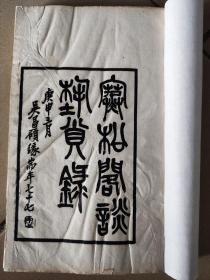 寒松閣談
藝瑣錄
庚申三月
吳昌碩篆耑年七十七